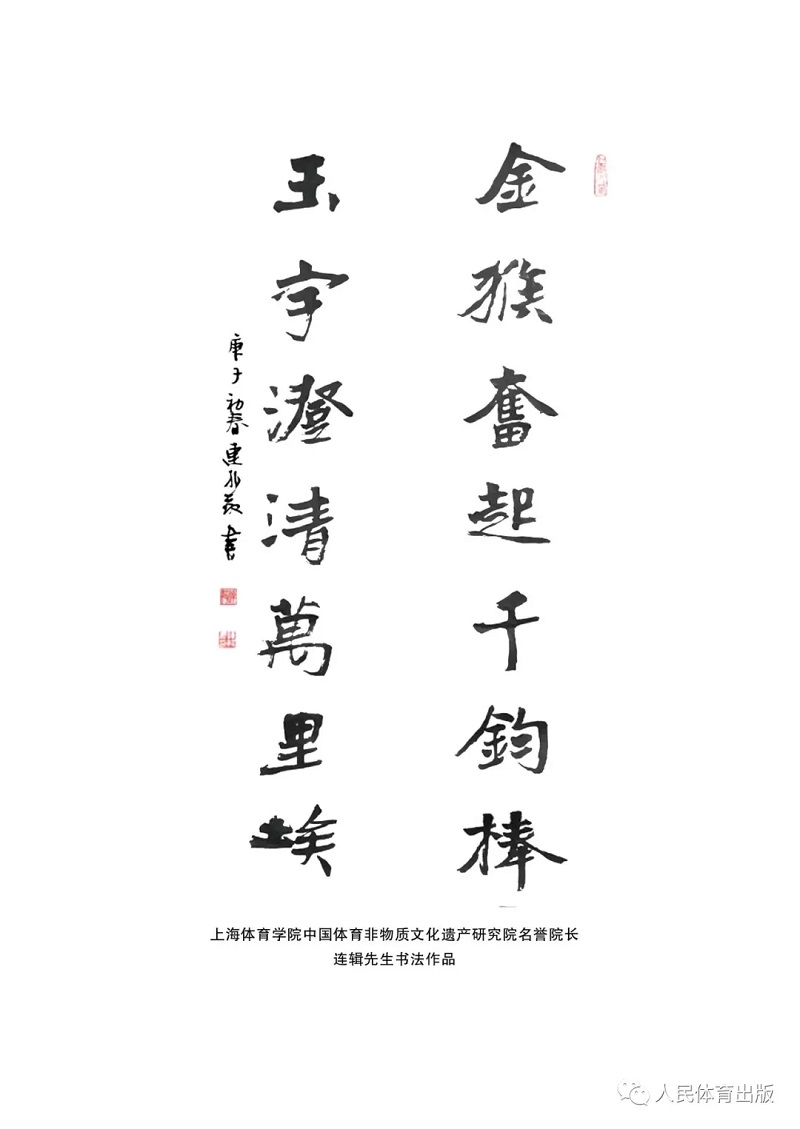 金猴奮起千鈞棒
玉宇澄清萬里埃
庚子初春連辑敬書
上海体育学院中国体育非物质文化遗产研究院名誉院长
连辑先生书法作品
人民体育出版